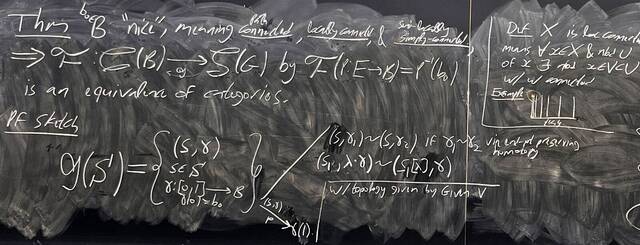 Thm b₀∈B "nice", meaning path connected, locally connected, & semi-locally simply-connected,
⇒ F: C(B) → S(G) by F(p:E→B)=p⁻¹(b₀)
is an equivalence of categories.
Pf Sketch
G(S) = { (s,γ)
s∈S
γ:[0,1]→B
γ(0)=b₀ }
(s,γ)
p
γ(1).
(s,γ₁)~(s,γ₂) if γ₁~γ₂ via endpt preserving
homotopy
w/ topology given by Given V
Def X is loc connected
means ∀x∈X & nbd U
of x ∃ nbd x∈V⊂U
w/ connected
Example